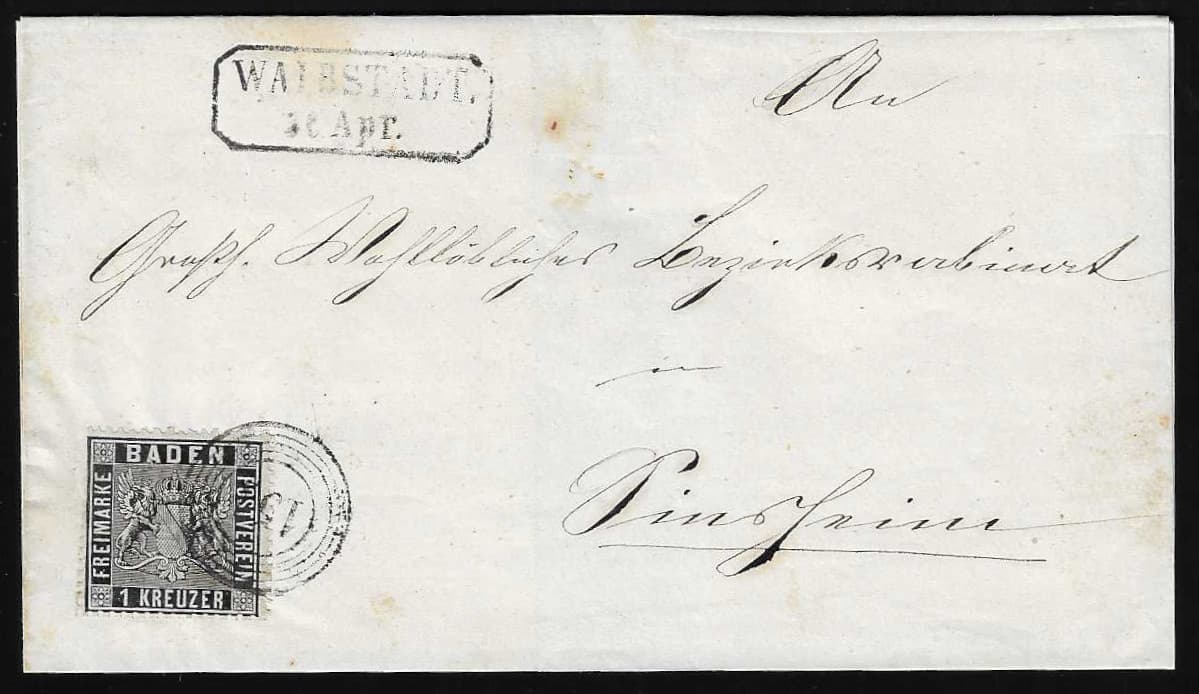 WAIBSTADT.
Apr.
An
Großh. Wohllöbliches Bezirksrabinat
in
Sinsheim
BADEN
FREIMARKE
POSTVEREIN
1 KREUZER